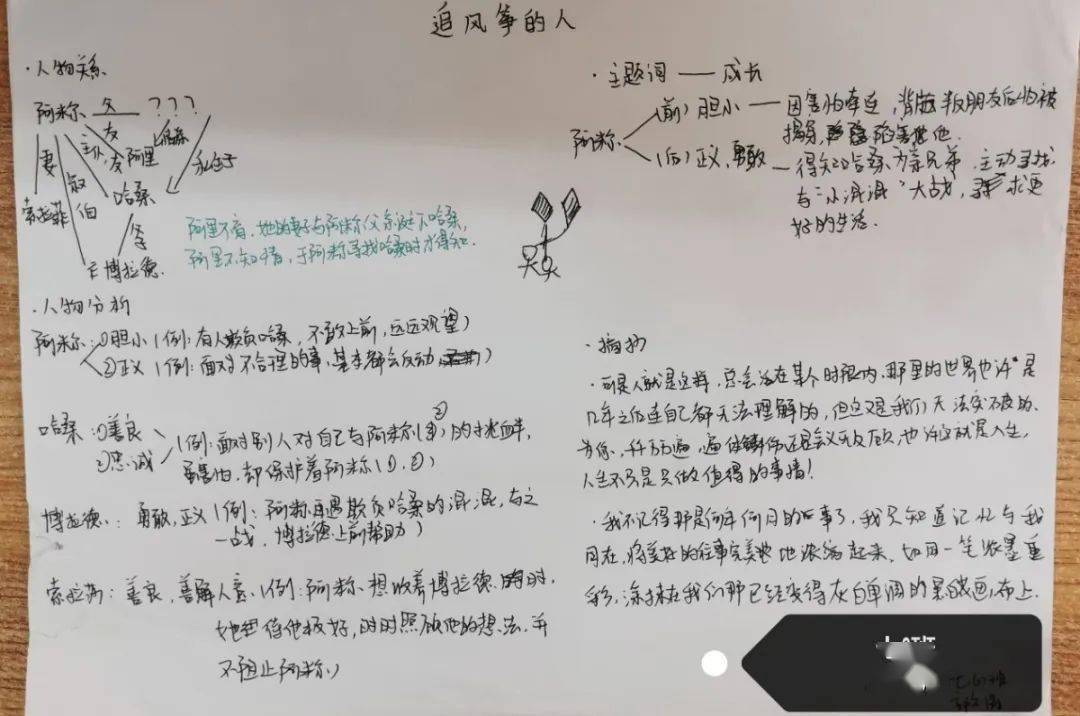 追风筝的人
·人物关系
阿米尔 父 ？？？
友
主仆
友 阿里
私生子
妻
叔
哈桑
索拉菲
伯
父子
博拉德.
阿里不育，她的妻子与阿米尔父亲诞下哈桑，
阿里不知情，于阿米尔寻找哈桑时才得知.
·人物分析
阿米尔：①胆小（例：有人欺负哈桑，不敢上前，远远观望）
②正义（例：面对不合理的事，基本都会反动）
哈桑：①善良
②忠诚
（例：面对别人对自己与阿米尔（②）的挑衅，
虽害怕，却保护着阿米尔（①.②）
博拉德：勇敢，正义（例：阿米尔再遇欺负哈桑的混混，与之
一战，博拉德上前帮助）
索拉菲：善良，善解人意、（例：阿米尔想收养博拉德时，
她把他极好，时时照顾他的想法，并
不阻止阿米尔）
·主题词——成长
阿米尔
（前）胆小——因害怕牵连，背叛朋友后怕被
揭穿，陷害他.
（后）正义，勇敢——得知哈桑为亲兄弟，主动寻找
与“小混混”大战，寻求更
好的生活.
·摘抄
·可是人就是这样，总会活在某个时限内，那里的世界也许是
几年之后连自己都无法理解的，但这又是我们无法突破的.
为你，千万遍，遍体鳞伤还是会义无反顾，也许这就是人生，
人生不只是只做值得的事情！
·我不记得那是何年何月的旧事了，我只知道记忆与我
同在，将美好的往事完美地浓缩起来，如用一笔浓墨重
彩，涂抹在我们那已经变得灰白单调的画布上.